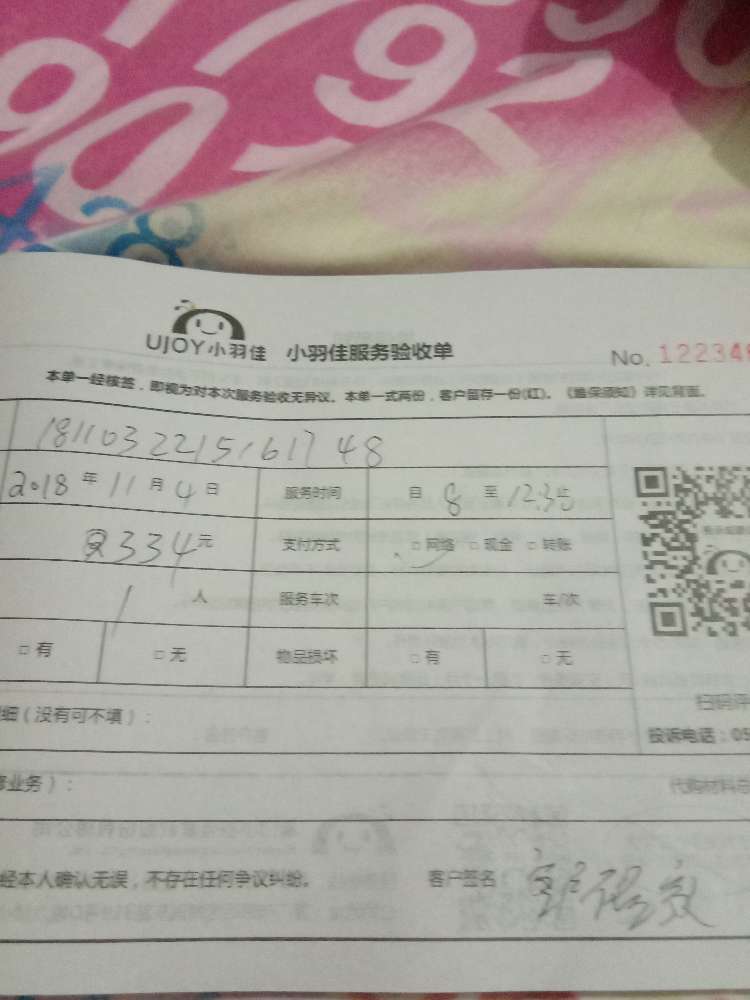 90
92
UJOY小羽佳 小羽佳服务验收单 No. 122348
本单一经核签，即视为对本次服务验收无异议。本单一式两份，客户留存一份(红)。《维保须知》详见背面。
1811032215161748
2018年11月4日 服务时间 自8至12.30止
334元 支付方式 □网络 □现金 □转账
1人 服务车次 车/次
□有 □无 物品损坏 □有 □无
细（没有可不填）：
扫码评
投诉电话：05
业务）：
代购材料总
经本人确认无误，不存在任何争议纠纷。 客户签名